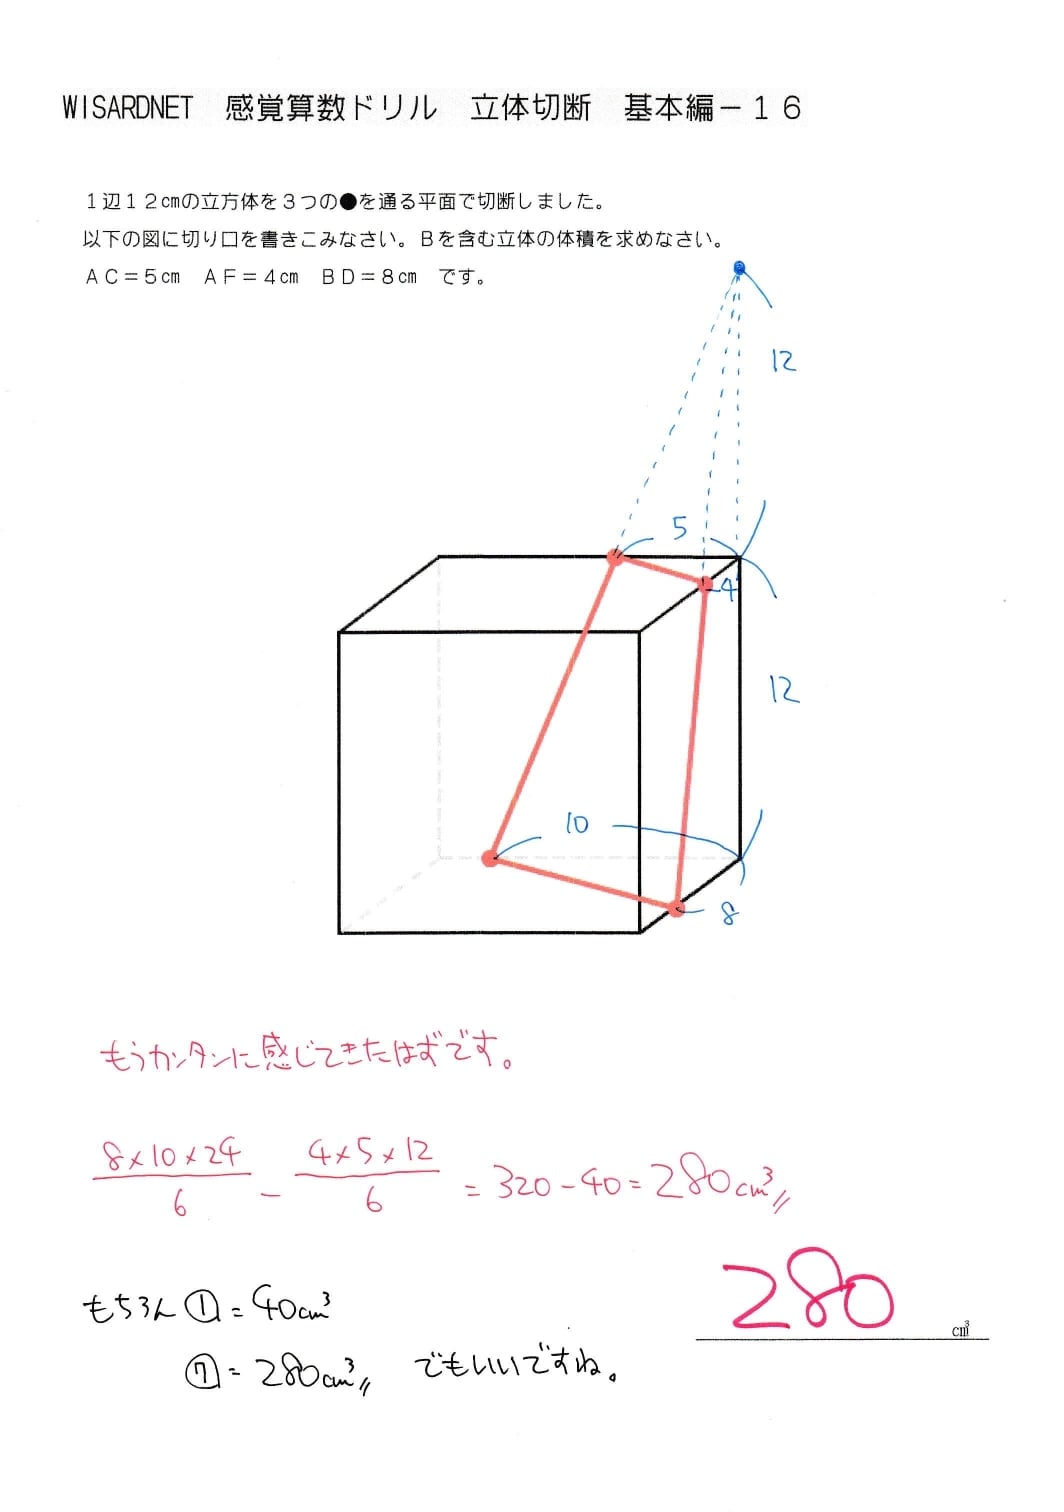 WISARDNET　感覚算数ドリル　立体切断　基本編－１６
１辺１２cmの立方体を３つの●を通る平面で切断しました。
以下の図に切り口を書きこみなさい。Ｂを含む立体の体積を求めなさい。
ＡＣ＝５cm　ＡＦ＝４cm　ＢＤ＝８cm　です。
12
5
4
12
10
8
もうカンタンに感じてきたはずです。
8×10×24/6 － 4×5×12/6 ＝ 320－40＝280cm³〃
280 cm³
もちろん ①＝40cm³
⑦＝280cm³〃　でもいいですね。